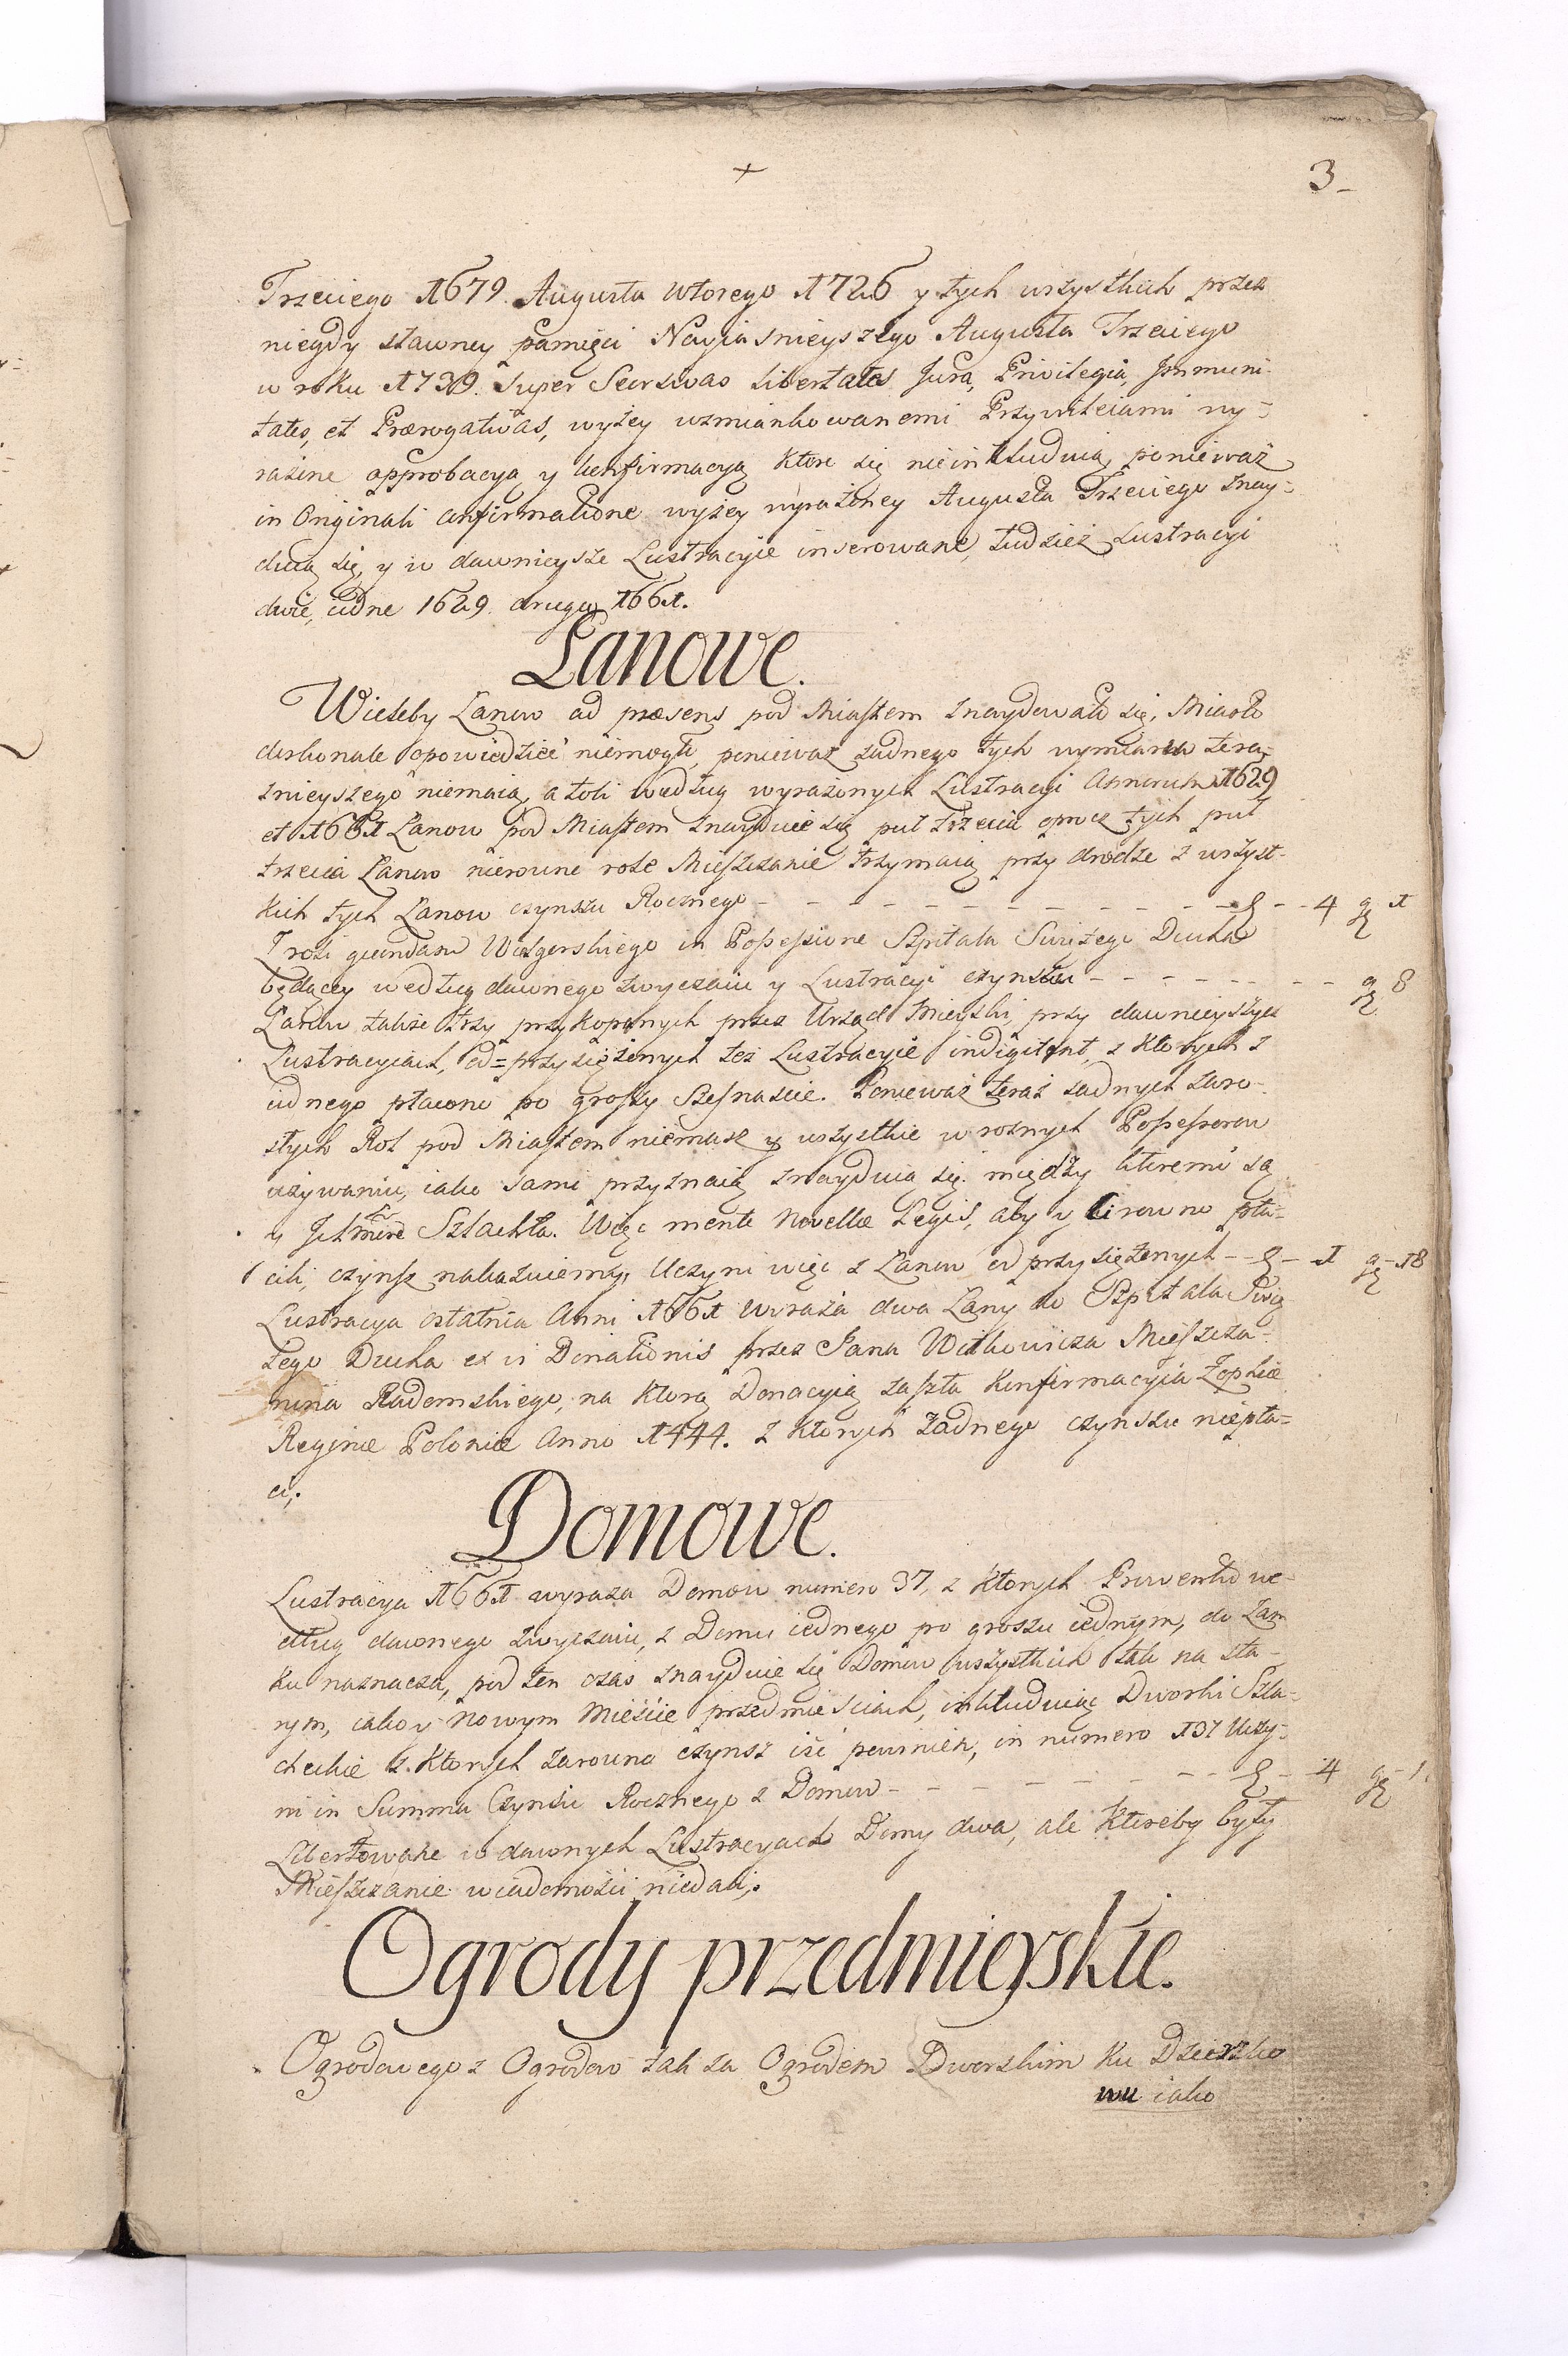 +
3_
Trzeciego 1679. Augusta wtorego 1726 y tych wszystkich przez
niegdy sławney pamięci Nayiasnieyszego Augusta Trzeciego
w roku 1739. super libertates Jura, Privilegia, Immuni-
tates, et Prærogativas, wyżey wzmiankowanemi Przywileiami wy-
rażne approbacyą y konfirmacyą ktore się nieinkluduią, ponieważ
in Originali confirmatione wyżey wyrażoney Augusta Trzeciego znay-
duią się, y w dawnieysze Lustracyie inserowane, tudzież Lustracyi
dwie, iedne 1629. drugą 1661.
Łanowe.
Wieleby Łanow ad præsens pod Miastem znaydowało się, Miasto
doskonale opowiedzieć niemogło, ponieważ żadnego tych wymiaru tera-
znieyszego niemaią, a toli według wyrażonych Lustracyi Annorum 1629
et 1661 Łanow pod Miastem znayduie się puł trzecia oprocz tych puł
trzecia Łanow nierowne role Mieszczanie trzymaią przy drodze z wszyst-
kich tych Łanow czynszu Rocznego - - - - - - - - 4 gr 1
Z roli gruntami in Possessione Szpitala Swiętego Ducha
będącey według dawnego zwyczaiu y Lustracyi czynszu - - - - - - gr 8
Łanow także trzy przykopanych przez Urząd Mieyski, przy dawnieyszych
Lustracyiach, od=przysiężonych też Lustracyie indigitant, z ktorych z
iednego płacono po groszy szesnascie. Ponieważ teraz żadnych
Rol pod Miastem niemasz y wszystkie w roznych Possessorow
używaniu, iako sami przyznaią znayduią się. między ktoremi są
y Szlachta. Więc mente Novellæ Legis, aby y Ci rowno pła-
cili, czynsz nakazuiemy, Uczyni więc z Łanow odprzysiężonych - - - 1 gr - 18
Lustracya ostatnia Anni 1661 wyraża dwa Łany do Szpitala Swię
tego Ducha ex vi Donationis przez Jana Witkowicza Mieszcza-
nina Radomskiego, na ktorą Donacyią zaszła konfirmacyia Zophiæ
Reginæ Poloniæ Anno 1444. z ktorych żadnego czynszu niepła-
ci.
Domowe.
Lustracya 1661 wyraża Domow numero 37, z ktorych Prowentu we-
dług dawnego zwyczaiu, z Domu iednego po groszu iednym, do Zam
ku naznacza, pod ten czas znayduie się Domow wszystkich tak na sta-
rym, iako y Nowym Mieście przedmiesciach, inkluduiąc Dworki Szla-
checkie z ktorych zarowna czynsz iść powinien, in numero 131 Uczy-
ni in Summa Czynszu Rocznego z Domow - - - - - - - 4 gr - 1.
Libertowane w dawnych Lustracyach Domy dwa, ale ktoreby były
Mieszczanie wiadomości niedali.
Ogrody przedmieyskie.
Ogrodowego z Ogrodow tak za Ogrodem Dworskim ku Dzierzko
wu iako